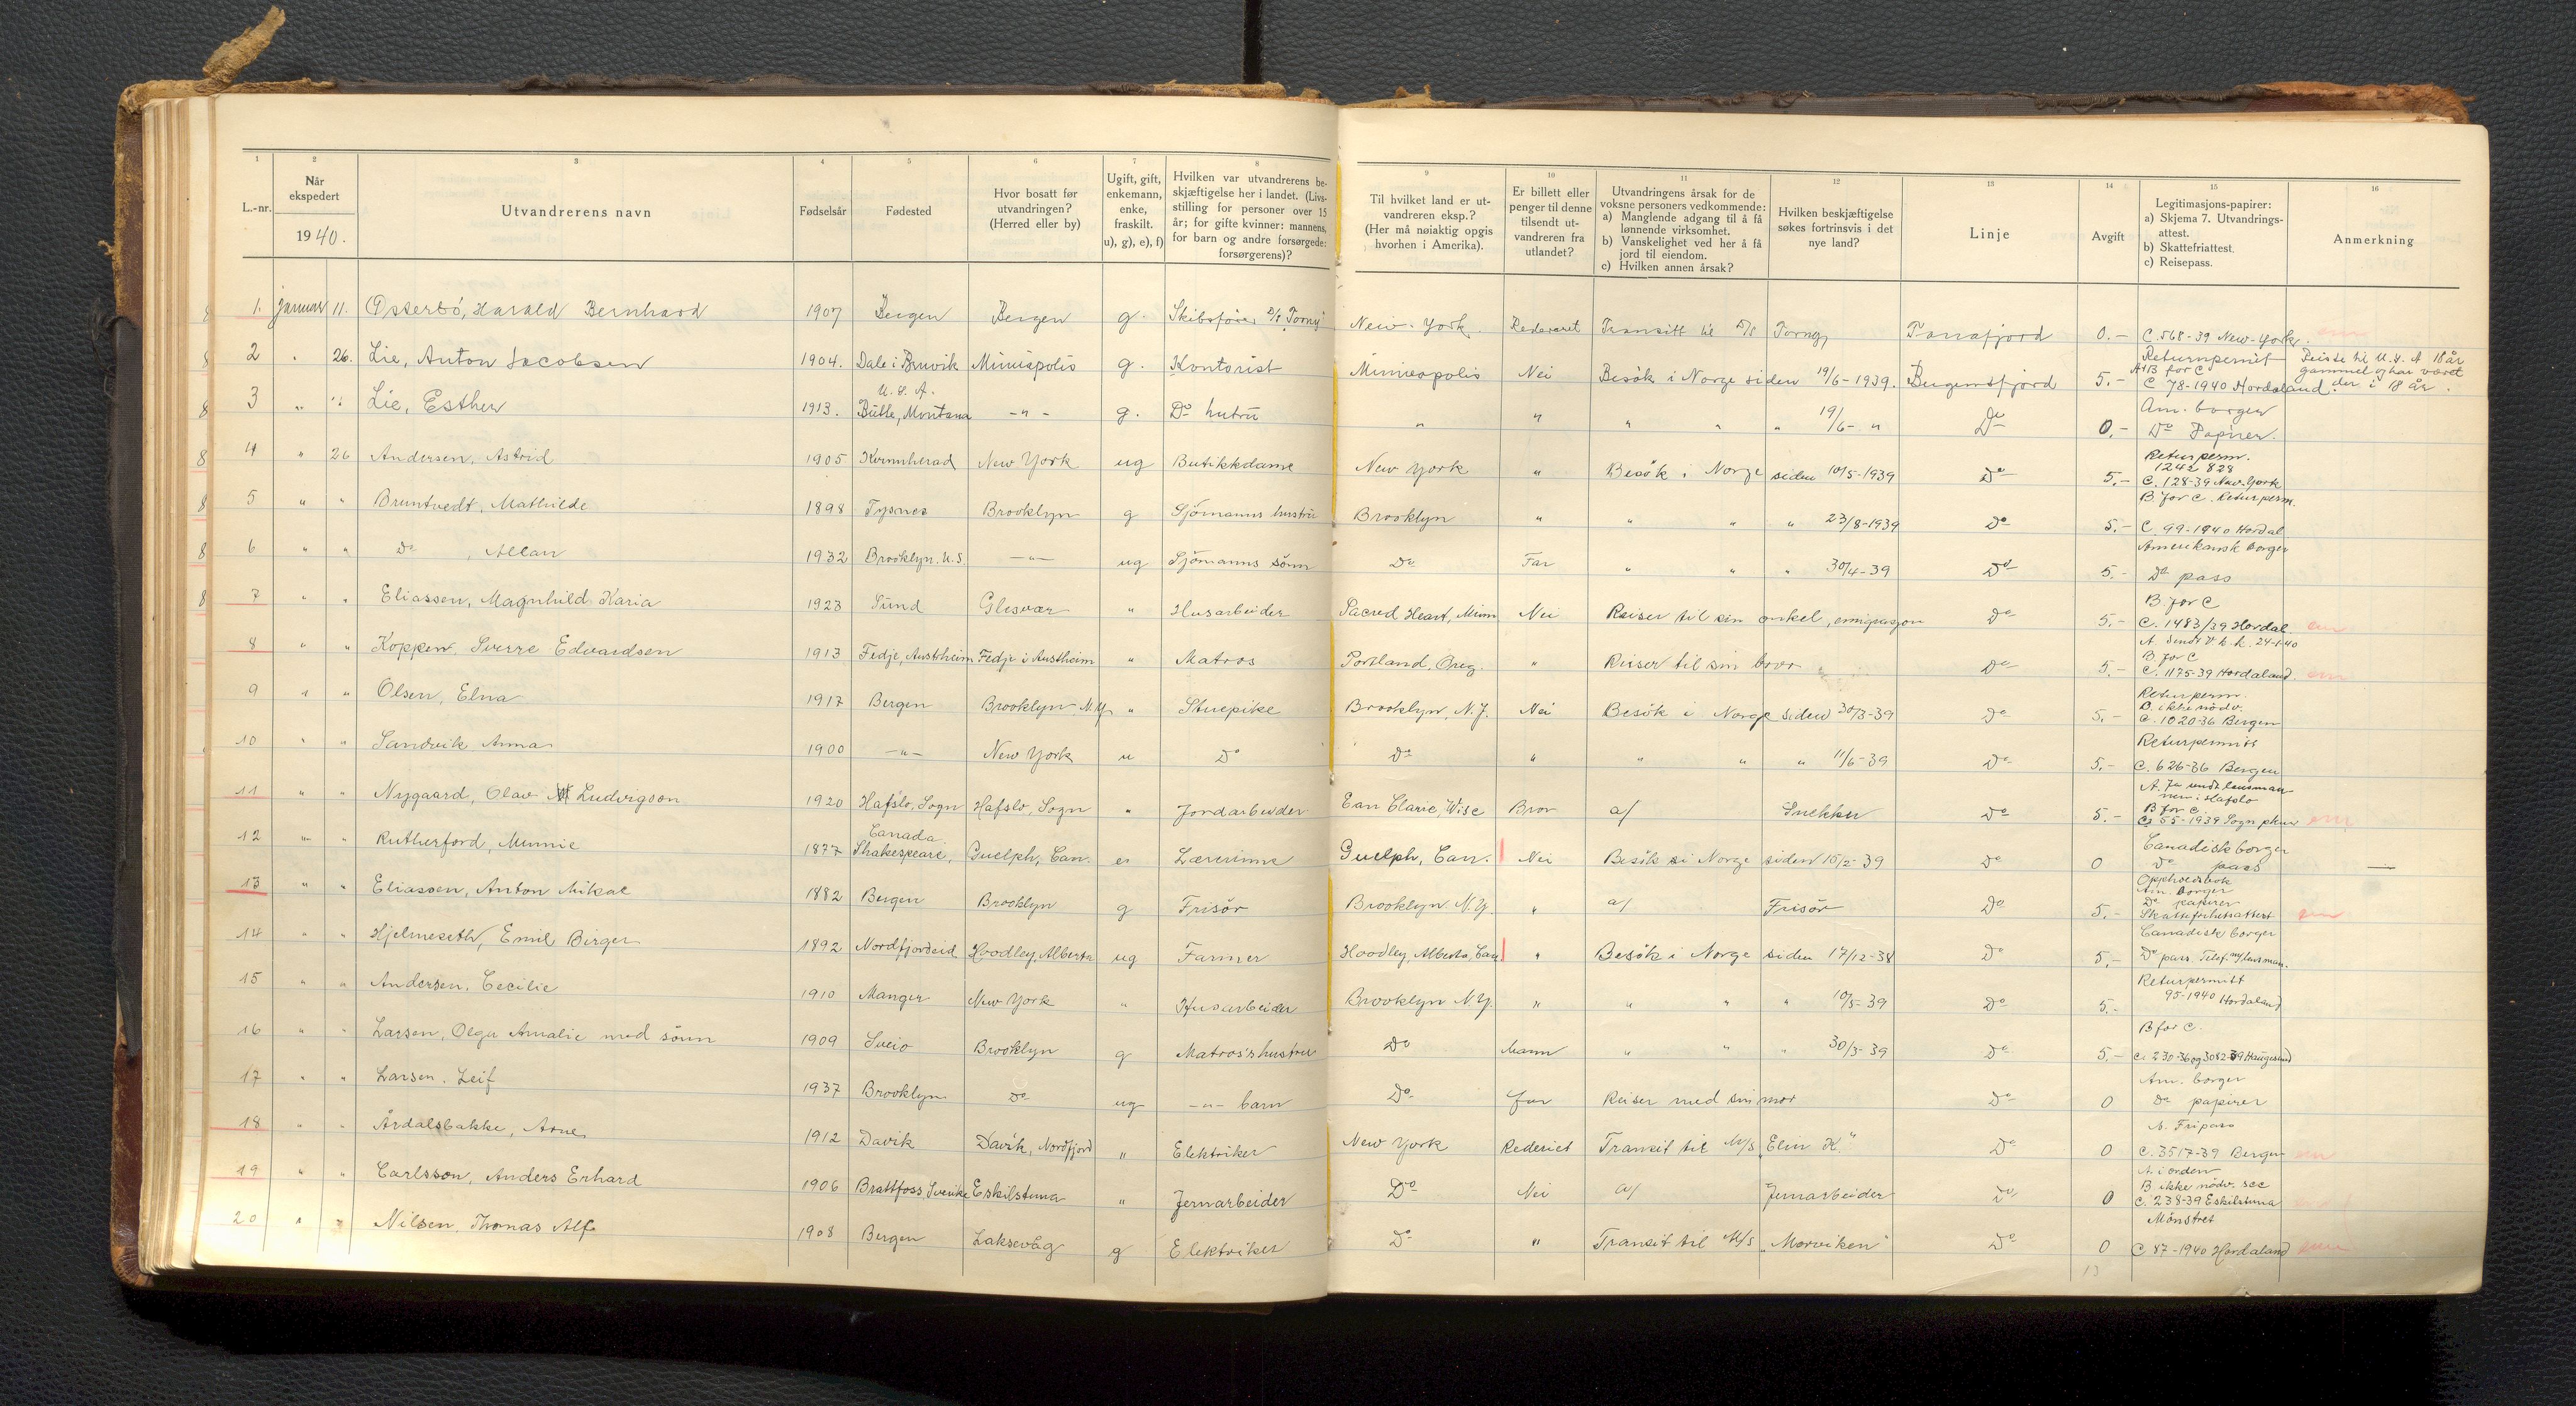 1 2 3 4 5 6 7 8 9 10 11 12 13 14 15 16
L.-nr. Når ekspedert 1940. Utvandrerens navn Fødselsår Fødested Hvor bosatt før utvandringen? (Herred eller by) Ugift, gift, enkemann, enke, fraskilt. u), g), e), f) Hvilken var utvandrerens beskjæftigelse her i landet. (Livsstilling for personer over 15 år; for gifte kvinner: mannens, for barn og andre forsørgede: forsørgerens)? Til hvilket land er utvandreren eksp.? (Her må nøiaktig opgis hvorhen i Amerika). Er billett eller penger til denne tilsendt utvandreren fra utlandet? Utvandringens årsak for de voksne personers vedkommende: a) Manglende adgang til å få lønnende virksomhet. b) Vanskelighet ved her å få jord til eiendom. c) Hvilken annen årsak? Hvilken beskjæftigelse søkes fortrinsvis i det nye land? Linje Avgift Legitimasjons-papirer: a) Skjema 7. Utvandringsattest. b) Skattefriattest. c) Reisepass. Anmerkning
8 1. Januar 11. Osterbö, Harald Bernhard 1907 Bergen Bergen g. Skibsförer D/S "Torny" New-York. Rederiet Transitt til D/S Torny Tanafjord 0.- C. 568-39 New-York.
8 2 " 26. Lie, Anton Jacobsen 1904. Dale i Bruvik Minneapolis g. Kontorist Minneapolis Nei Besök i Norge siden 19/6-1939. Bergensfjord 5.- Returnpermit A+B for C C 78-1940 Hordaland. Reiste til U.S.A 18 år gammel og har været der i 18 år.
8 3 " " Lie, Esther 1913. U.S.A. Butte, Montana -"- g. Do hutru " " " " " 19/6- " Do 0,- Am. borger Do Papirer.
8 4 " 26 Andersen, Astrid 1905 Kvinnherad New York ug Butikkdame New York " Besök i Norge siden 10/5-1939 Do 5,- Retur perm. 1242828 C. 128-39 New-York
8 5 " " Bruntvedt, Mathilde 1898 Tysnes Brooklyn g Sjömanns hustru Brooklyn " " " " 23/8-1939 Do 5.- B for C. Retur perm. C. 99-1940 Hordal
8 6 " " Do , Allan 1932 Brooklyn. U.S. -"- ug Sjömanns sönn Do Far " " " 30/4-39 Do 5.- Amerikansk borger Do pass
8 7 " " Eliassen, Magnhild Karia 1923 Sund Glesvær " Husarbeider Sacred Heart, Minn Nei Reiser til sin onkel, emigrasjon Do 5,- B for C C. 1483/39 Hordal
8 " " Koppen, Sverre Edvardsen 1913 Fedje, Austrheim Fedje i Austheim " Matros Portland, Oreg. " Reiser til sin bror Do 5,- A sendt 24-1-40 B for C C. 1175-39 Hordaland.
9 " " Olsen, Elna 1917 Bergen Brooklyn N.Y. " Stuepike Brooklyn, N.J. Nei Besök i Norge siden 30/3-39 Do 5,- Retur perm. B. ikke nödv. C. 1020-36 Bergen
10 " " Sandvik Anna 1900 -"- New York u Do Do " " " " 11/6-39 Do 5,- Returpermitt C. 626-36 Bergen
11 " " Nygaard, Olav Ludvigson 1920 Hafslo, Sogn Hafslo, Sogn " Jordarbeider Eau Claire, Wisc Bror a/ Snekker Do 5.- A. fra lensmannen i Hafslo B for C C 55-1939 Sogn
12 " " Rutherford, Minnie 1877 Canada Shakespeare, Guelph, Can. e Lærerinne Guelph, Can. Nei Besök i Norge siden 15/2-39 Do 0 Canadisk borger Do pass —
13 " " Eliassen, Anton Mikal 1882 Bergen Brooklyn g Frisör Brooklyn N.Y. " a/ Frisör Do 5,- Oppholdsbok Am. borger Do papirer Skattefrihetsattest
14 " " Hjelmeseth, Emil Birger 1892 Nordfjordeid Hoodley, Alberta ug Farmer Hoodley, Alberta, Can. " Besök i Norge siden 17/12-38 Do 5,- Canadisk borger Do pass. Telef. m/ lensman.
15 " " Andersen, Cecilie 1910 Manger New York " Husarbeider Brooklyn N.Y. " " " " 10/5-39 Do 5.- Returpermitt 95-1940 Hordaland
16 " " Larsen, Olga Amalie med sönn 1909 Sveio Brooklyn g Matros's hustru Do Mann " " " 30/3-39 Do 5,- B for C. C. 230-36 og 3082-39 Haugesund
17 " " Larsen, Leif 1937 Brooklyn Do ug -"- barn Do far Reiser med sin mor Do 0 Am. borger Do papirer
18 " " Årdalsbakke, Arne 1912 Davik Davik, Nordfjord " Elektriker New York Rederiet Transit til M/S "Elin K." Do 0 A. Fripass C. 3517-39 Bergen
19 " " Carlsson, Anders Erhard 1906 Brattfoss Sverike Eskilstuna " Jernarbeider Do Nei a/ Jernarbeider Do 0 A. i orden B ikke nödv. C. 238-39 Eskilstuna
20 " " Nilsen, Thomas Alf 1908 Bergen Laksevåg g Elektriker Do " Transit til M/S "Morviken" Do 0 Mönstret C 87-1940 Hordaland
13